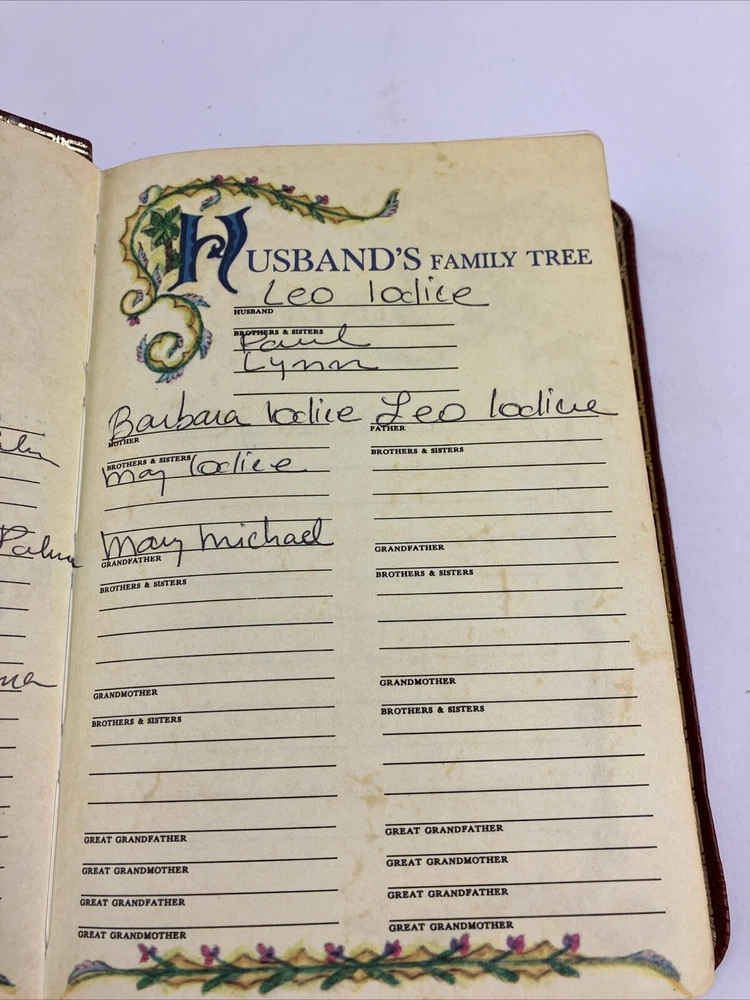 HUSBAND'S FAMILY TREE
Leo Iodice
HUSBAND
BROTHERS & SISTERS
Paul
Lynn
Barbara Iodice Leo Iodice
MOTHER FATHER
BROTHERS & SISTERS BROTHERS & SISTERS
May Iodice
Mary Michael
GRANDFATHER GRANDFATHER
BROTHERS & SISTERS BROTHERS & SISTERS
Palma
GRANDMOTHER GRANDMOTHER
BROTHERS & SISTERS BROTHERS & SISTERS
GREAT GRANDFATHER GREAT GRANDFATHER
GREAT GRANDMOTHER GREAT GRANDMOTHER
GREAT GRANDFATHER GREAT GRANDFATHER
GREAT GRANDMOTHER GREAT GRANDMOTHER